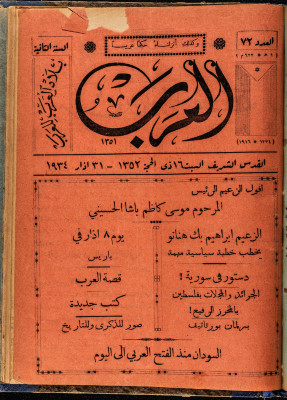 العدد ٧٢
وكذلك أنزلناه حكماً عربياً
السنة الثانية
بلاد العرب للعرب
العرب
١٣٥١
القدس الشريف السبت ١٦ ذي الحجة ١٣٥٢ - ٣١ آذار ١٩٣٤
افول الزعيم الرئيس
المرحوم موسى كاظم باشا الحسيني
الزعيم ابراهيم بك هنانو
يخطب خطبة سياسية مهمة
يوم ٨ اذار في
باريس
دستور في سورية !
الجرائد والمجلات بفلسطين
بالمحرر الرفيع !
برلمان بورتاتيف
قصة العرب
كتب جديدة
صور للذكرى وللتاريخ
السودان منذ الفتح العربي الى اليوم